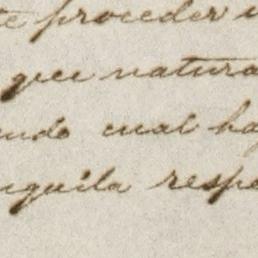 te proceder
que natura
ndo cual ha
nguila respe